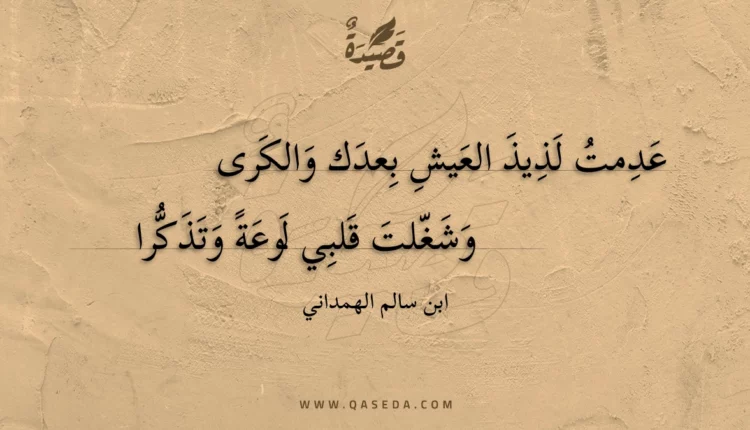 قَصِيدَةٌ
عَدِمتُ لَذِيذَ العَيشِ بِعدَك وَالكَرَى
وَشَغّلتَ قَلبِي لَوعَةً وَتَذَكُّرا
ابن سالم الهمداني
WWW.QASEDA.COM